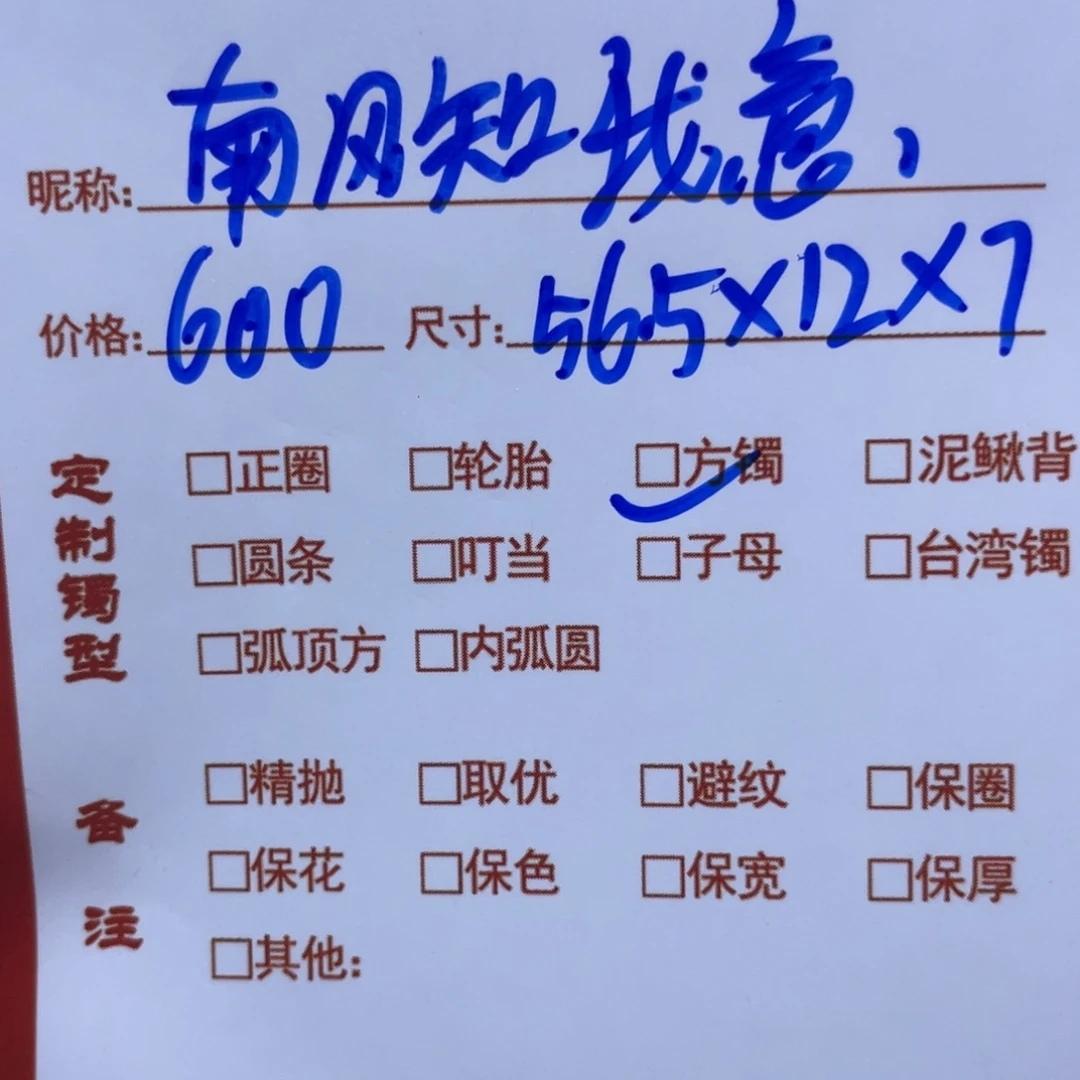 昵称:南风知我意、
价格:600 尺寸:565×12×7
定制镯型
□正圈 □轮胎 □方镯 □泥鳅背
□圆条 □叮当 □子母 □台湾镯
□弧顶方 □内弧圆
备注
□精抛 □取优 □避纹 □保圈
□保花 □保色 □保宽 □保厚
□其他: